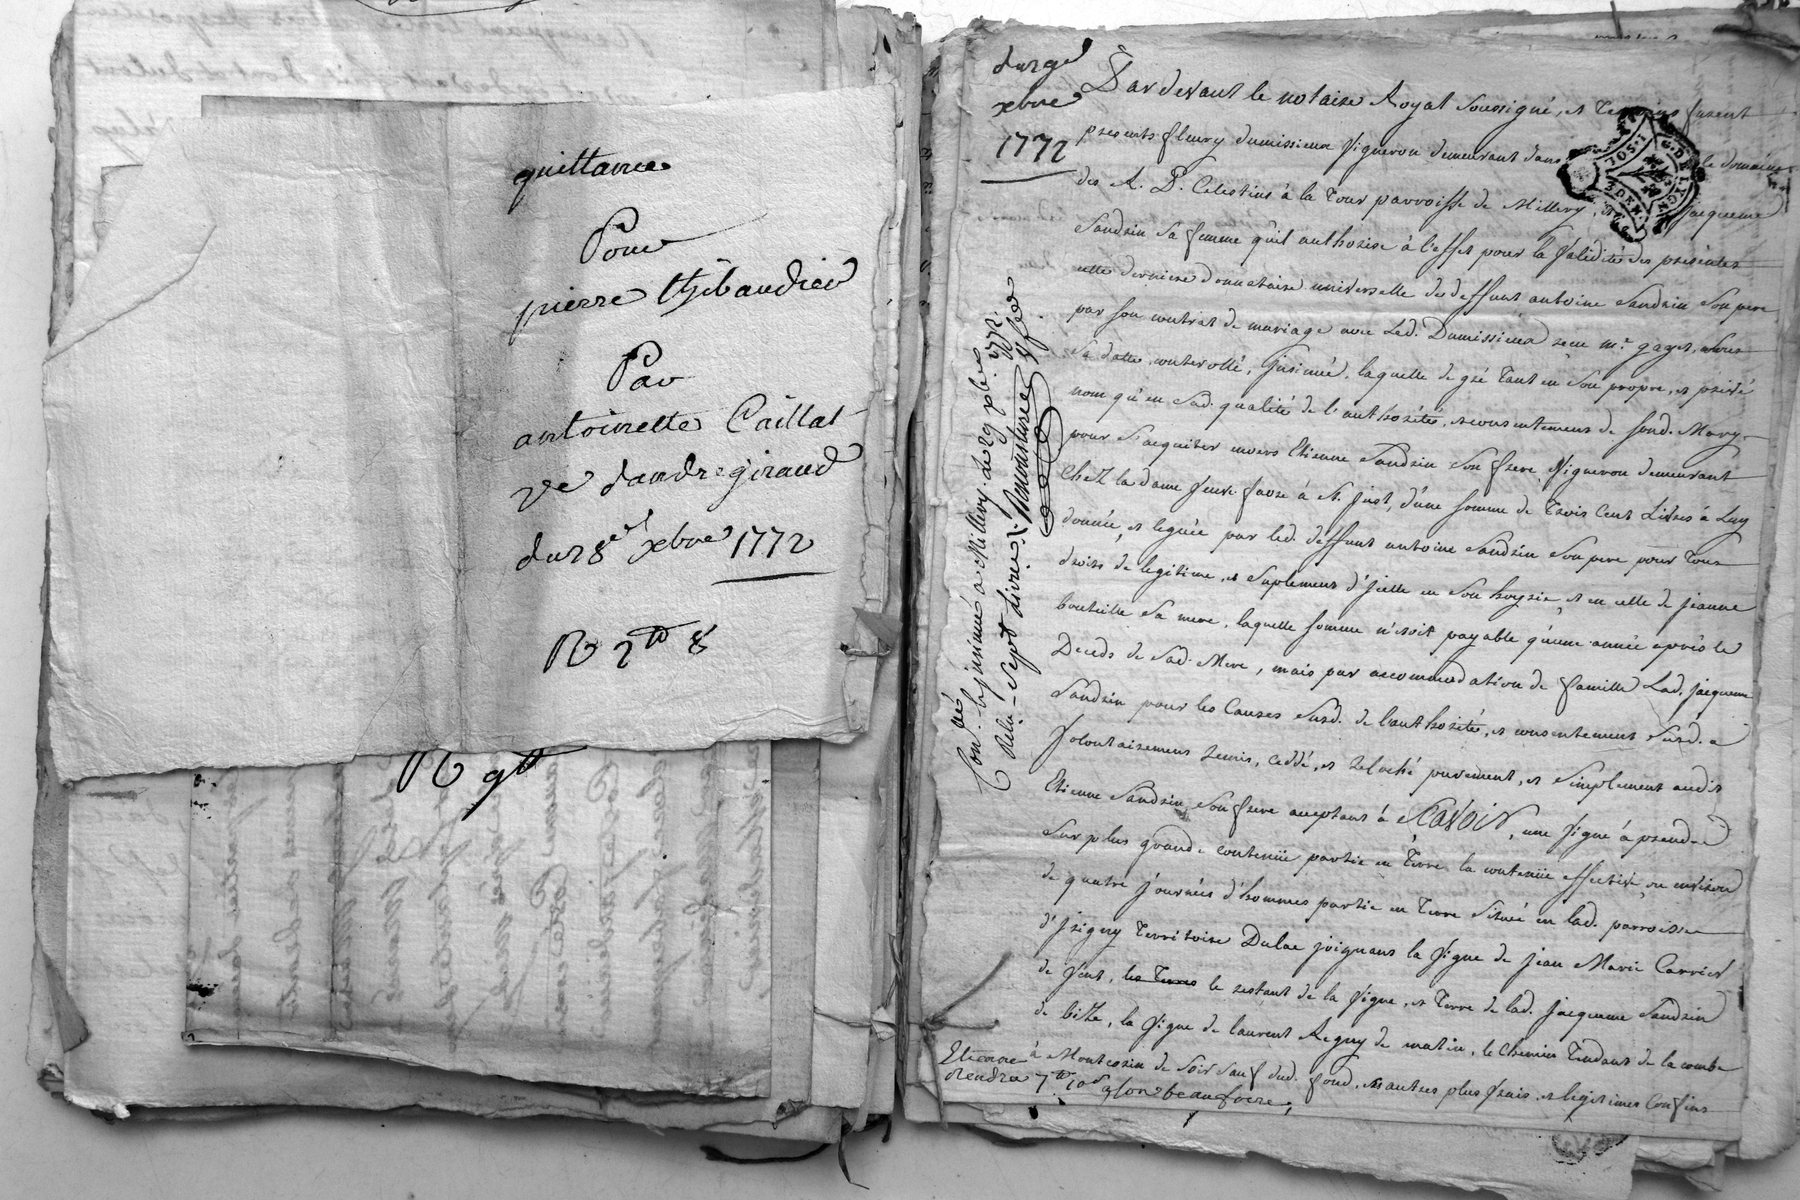 quittance
Pour
pierre thibaudier
Par
antoinette Caillat
ve d'andré giraud
du 28e xbre 1772
R 2tt 8
R 9tt
du 29e
xbre
1772
Pardevant le notaire Royal soussigné, et temoins furent
presents fleury dumissieux Vigneron demeurant dans le domaine
des R. P. Celestins à la Tour parroisse de Millery, jacqueme
Sandrin sa femme qu'il authorise à l'effet pour la Validité des presentes
cette derniere donnataire universelle de deffunt antoine Sandrin son pere
par son contrat de mariage avec led. Dumissieux recu me gazet, notre
sa datte, controllé, insinué, laquelle de gré tant en son propre, et privé
nom qu'en sad. qualité de l'authorité, et consentement de sond. Mary
pour s'acquiter envers Etienne Sandrin son frere Vigneron demeurant
chez la dame Veuve favre à st. just, d'une somme de trois cent Livres à Luy
donnée, et leguée par led. deffunt antoine Sandrin son pere pour tous
droits de legitime, et suplement d'Icelle en son hoyrie et en celle de jeanne
bouteille sa mere, laquelle somme n'etoit payable qu'une année après le
Deceds de sad. Mere, mais par accommodation de famille Lad. jacqueme
Sandrin pour les causes susd. de l'authorité, et consentement susd. a
Volontairement remis, ceddé, et relaché purement, et simplement audit
Etienne Sandrin son frere acceptant à Scavoir, une Vigne à prendre
sur plus grande contenüe partie en Terre la contenüe effective ou environ
de quatre journées d'hommes partie en Terre située en lad. parroisse
d'Irigny Territoire Dulac joignant la Vigne de jean Marie Carrier
de Vent, les Terres le restant de la Vigne, et Terre de lad. jacqueme Sandrin
de bize, la Vigne de laurent Regny de matin, le chemin Tendant de la combe
à Montcorin de soir sauf dud. fond, ses autres plus Vrais et legitimes confins
Cond. et insinué à Millery le 29 xbre 1772.
Recu sept livres